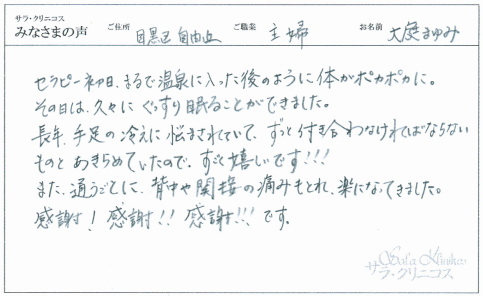 サラ・クリニコス
みなさまの声 ご住所 目黒区 自由が丘 ご職業 主婦 お名前 大庭まゆみ
セラピー初日、まるで温泉に入った後のように体がポカポカに。
その日は、久々に ぐっすり眠ることができました。
長年、手足の冷えに悩まされていて、ずっと付き合わなければならない
ものと あきらめていたので、すごく嬉しいです!!!
また、通うごとに、背中や関接の痛みもとれ、楽になってきました。
感謝! 感謝!! 感謝!!! です。
Sala Klinikos
サラ・クリニコス